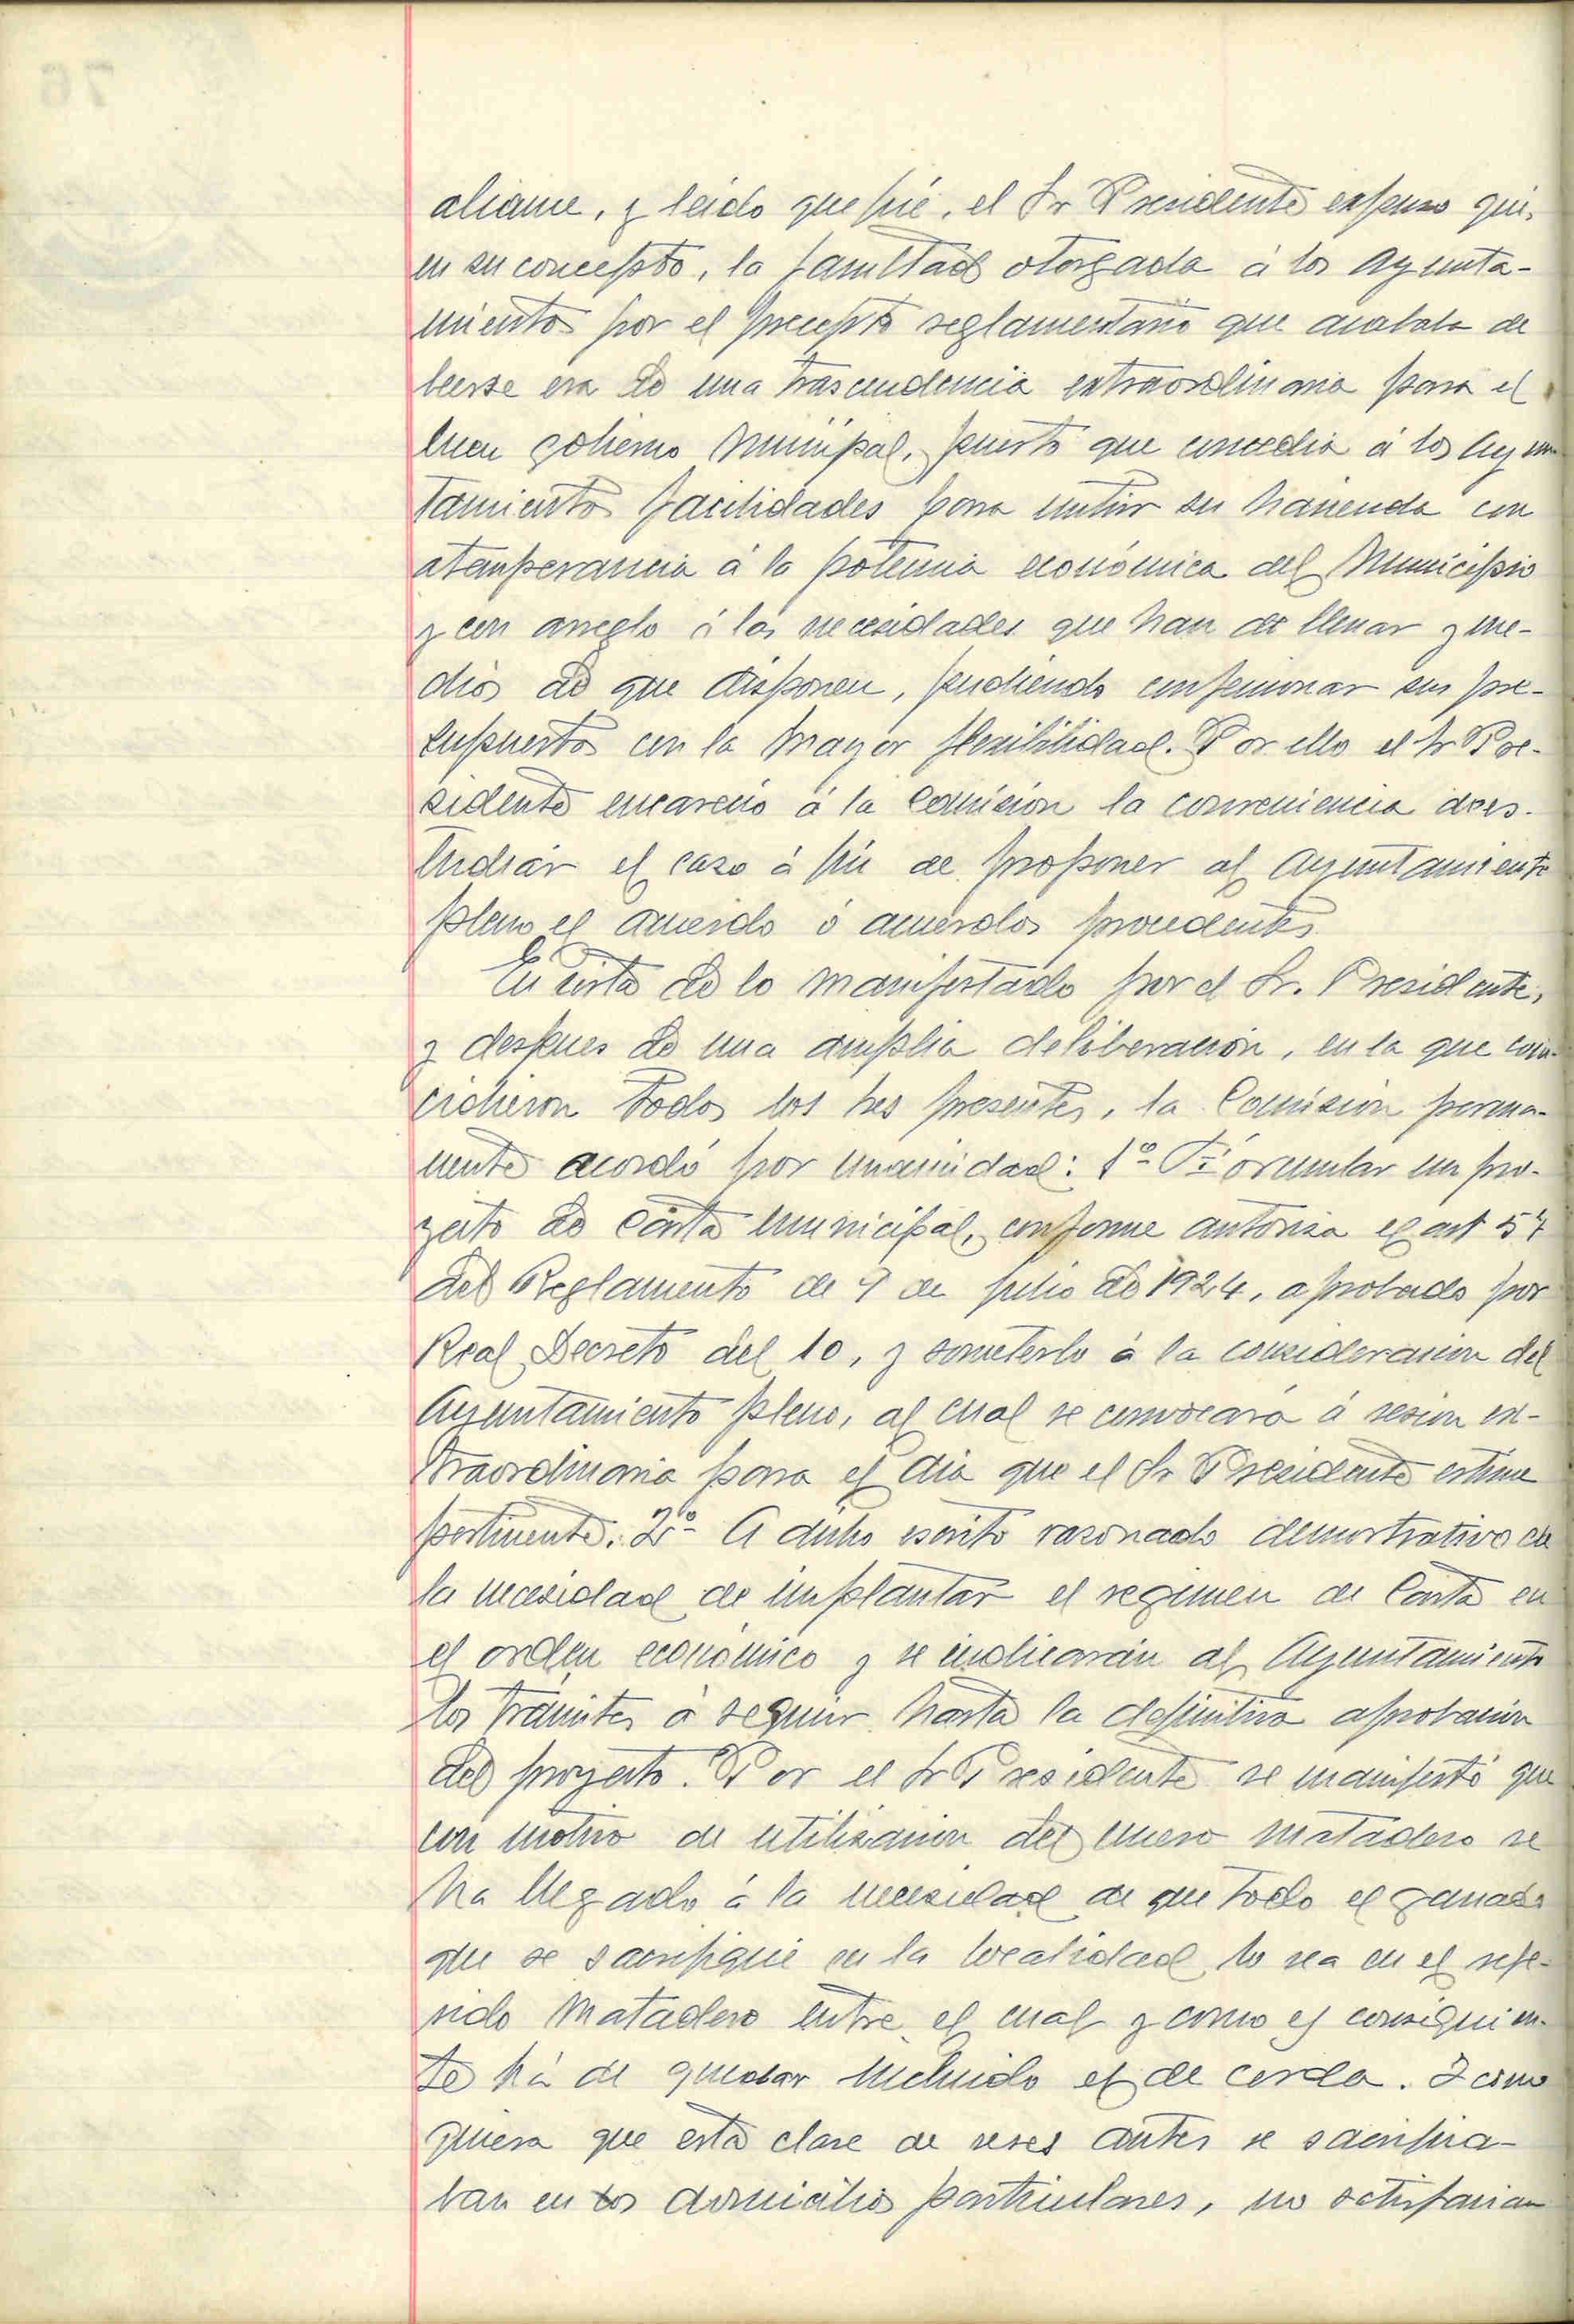 aliame, y leido que fué, el Sr Presidente expuso que,
en su concepto, la facultad otorgada á los Ayunta-
mientos por el precepto reglamentario que acababa de
leerse era de una trascendencia extraordinaria para el
buen gobierno Municipal, puesto que concedia á los Ayun
tamientos facilidades para nutrir su hacienda con
atemperancia á la potencia económica del Municipio
y con arreglo á las necesidades que han de llenar y me-
dios de que disponen, pudiendo confeccionar sus pre-
supuestos con la mayor flexibilidad. Por ello el Sr Pre-
sidente encareció á la Comisión la conveniencia de es-
tudiar el caso á fin de proponer al Ayuntamiento
pleno el acuerdo ó acuerdos procedentes.
En vista de lo manifestado por el Sr. Presidente,
y despues de una amplia deliberación, en la que coin-
cidieron todos los Sres presentes, la Comisión perma-
nente acordó por unanimidad: 1º Formular un pro-
yecto de Carta municipal, conforme autoriza el art 57
del Reglamento de 9 de julio de 1924, aprobado por
Real Decreto del 10, y someterlo á la consideracion del
Ayuntamiento pleno, al cual se convocará á sesion ex-
traordinaria para el dia que el Sr Presidente estime
pertinente: 2º A dicho escrito razonado demostrativo de
la necesidad de implantar el regimen de Carta en
el orden económico y se indicarán al Ayuntamiento
los trámites á seguir hasta la definitiva aprobación
del proyecto. Por el Sr Presidente se manifestó que
con motivo de utilización del nuevo matadero se
ha llegado á la necesidad de que todo el ganado
que se sacrifique en la localidad lo sea en el refe-
rido Matadero entre el cual y como es consiguien-
te há de quedar incluido el de cerda. Y como
quiera que esta clase de reses antes se sacrifica-
ban en los domicilios particulares, no satisfacian